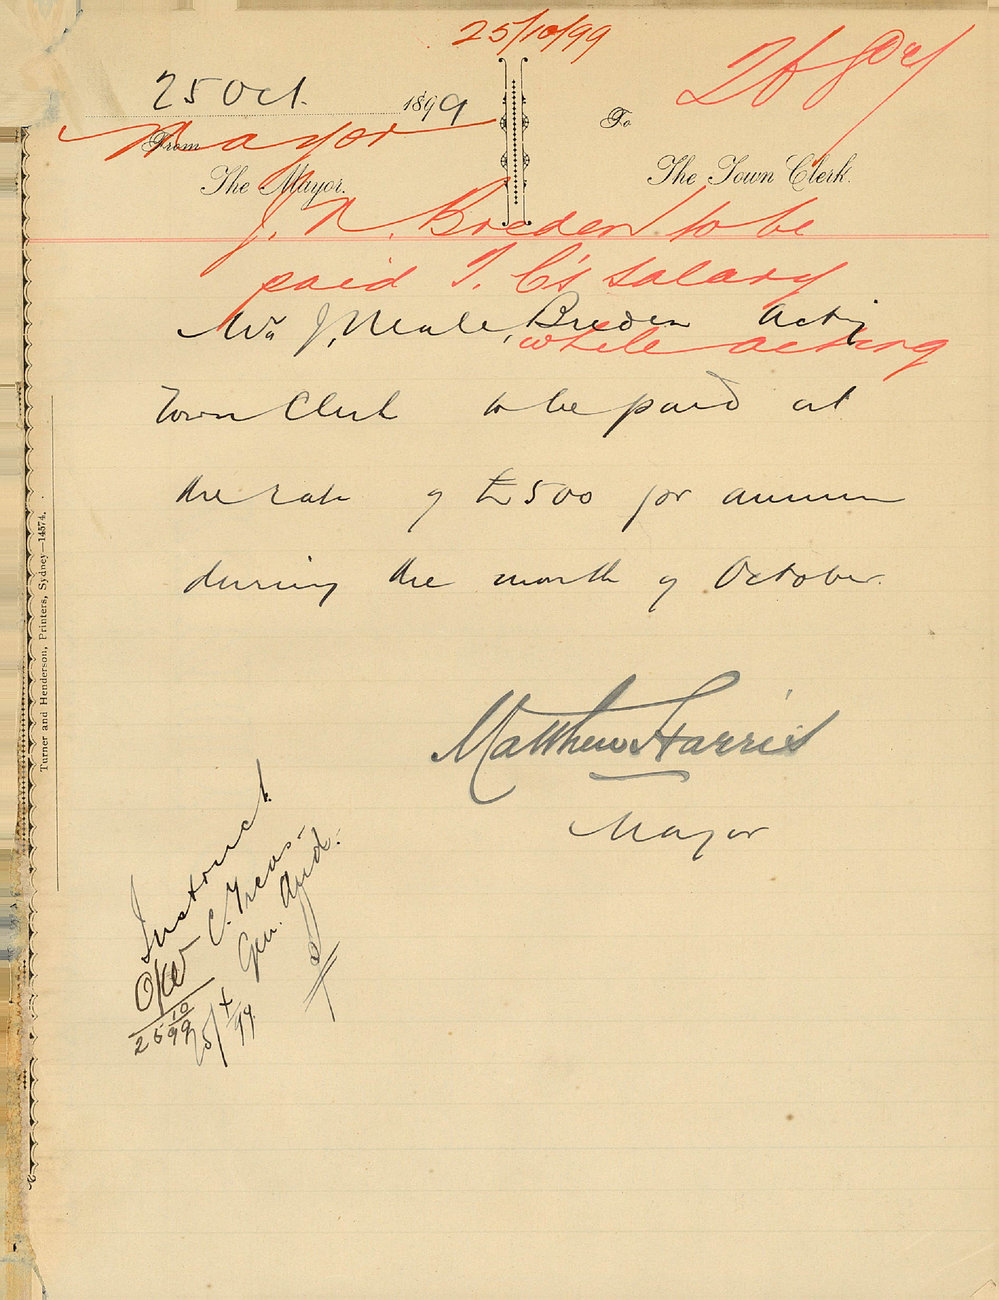 25/10/99
25 Oct. 1899
From
Mayor
The Mayor.
To
The Town Clerk.
J. N. Breden to be
paid T. C's salary
while acting
Mr J, Neale, Breden Actg
Town Clerk to be paid at
the rate of £500 per annum
during the month of October.
Matthew Harris
Mayor
Instruct
C. Treas.
Gen. Aud.
25 10 99
25/X/99
Turner and Henderson, Printers, Sydney—14574.